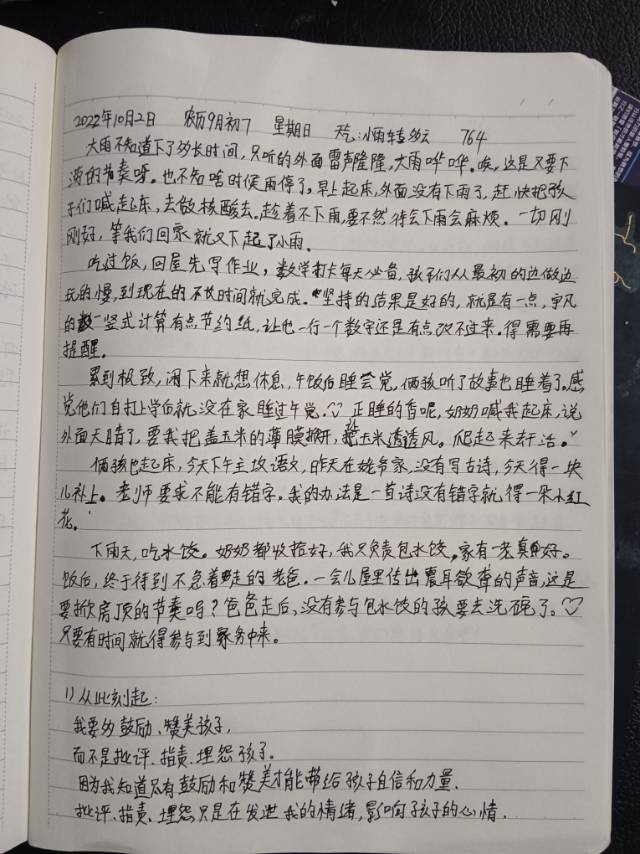 2022年10月2日 农历9月初7 星期日 天气:小雨转多云 764
大雨不知道下了多长时间,只听的外面雷声隆隆,大雨哗哗。唉,这是又要下
涝的节奏呀。也不知啥时侯雨停了,早上起床,外面没有下雨了,赶快把孩
子们喊起床,去做核酸去。趁着不下雨,要不然待会下雨会麻烦。一切刚
刚好,等我们回家就又下起了小雨。
吃过饭,回屋先写作业,数学打卡每天必备,孩子们从最初的边做边
玩的慢,到现在的不长时间就完成。坚持的结果是好的,就是有一点,宇凡
的竖式计算有点节约纸,让他一行一个数字还是有点改不过来。得需要再
提醒。
累到极致,闲下来就想休息,午饭后睡会觉,俩孩听了故事也睡着了。感
觉他们自打上学后就没在家睡过午觉。正睡的香呢,奶奶喊我起床,说
外面天晴了,要我把盖玉米的薄膜掀开,让玉米透透风。爬起来干活。
俩孩也起床,今天下午主攻语文,昨天在姥爷家,没有写古诗,今天得一块
儿补上。老师要求不能有错字。我的办法是一首诗没有错字就得一朵小红
花。
下雨天,吃水饺。奶奶都收拾好,我只负责包水饺,家有一老真好。
饭后,终于等到不急着走的老爸。一会儿屋里传出震耳欲聋的声音,这是
要掀房顶的节奏吗?爸爸走后,没有参与包水饺的孩要去洗碗了。♡
只要有时间就得参与到家务中来。
1)从此刻起:
我要多鼓励、赞美孩子,
而不是批评、指责、埋怨孩子。
因为我知道只有鼓励和赞美才能带给孩子自信和力量,
批评、指责、埋怨只是在发泄我的情绪,影响孩子的心情.